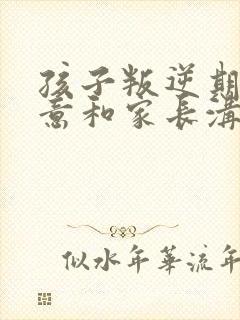 孩子叛逆期
意和家長溝
似水年華流年